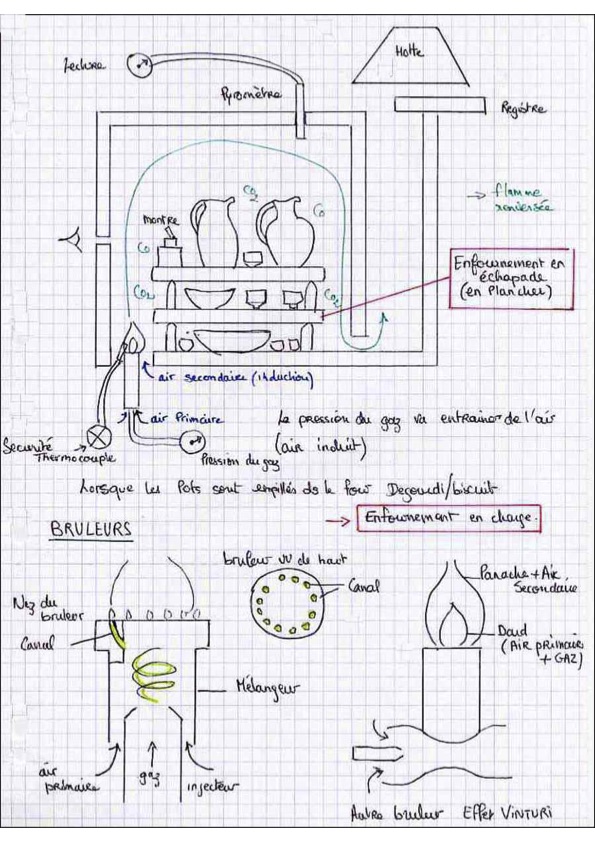 Hotte
Lecture
Pyromètre
Registre
flamme
renversée
CO2
CO
montre
CO
CO2
CO2
Enfournement en
échapade
(en Plancher)
air secondaire (induction)
air Primaire
Le pression du gaz va entrainer de l'air
(air induit)
Securité
Thermocouple
Pression du gaz
Lorsque les Pots sont empillés ds le four Degourdi/biscuit
→ Enfournement en charge.
BRULEURS
bruleur vu de haut
Canal
Nez du
bruleur
Canal
Mélangeur
Panache + Air
Secondaire
Dard
(Air primaire
+ GAZ)
air
primaire
gaz
injecteur
Autre bruleur Effet VINTURI